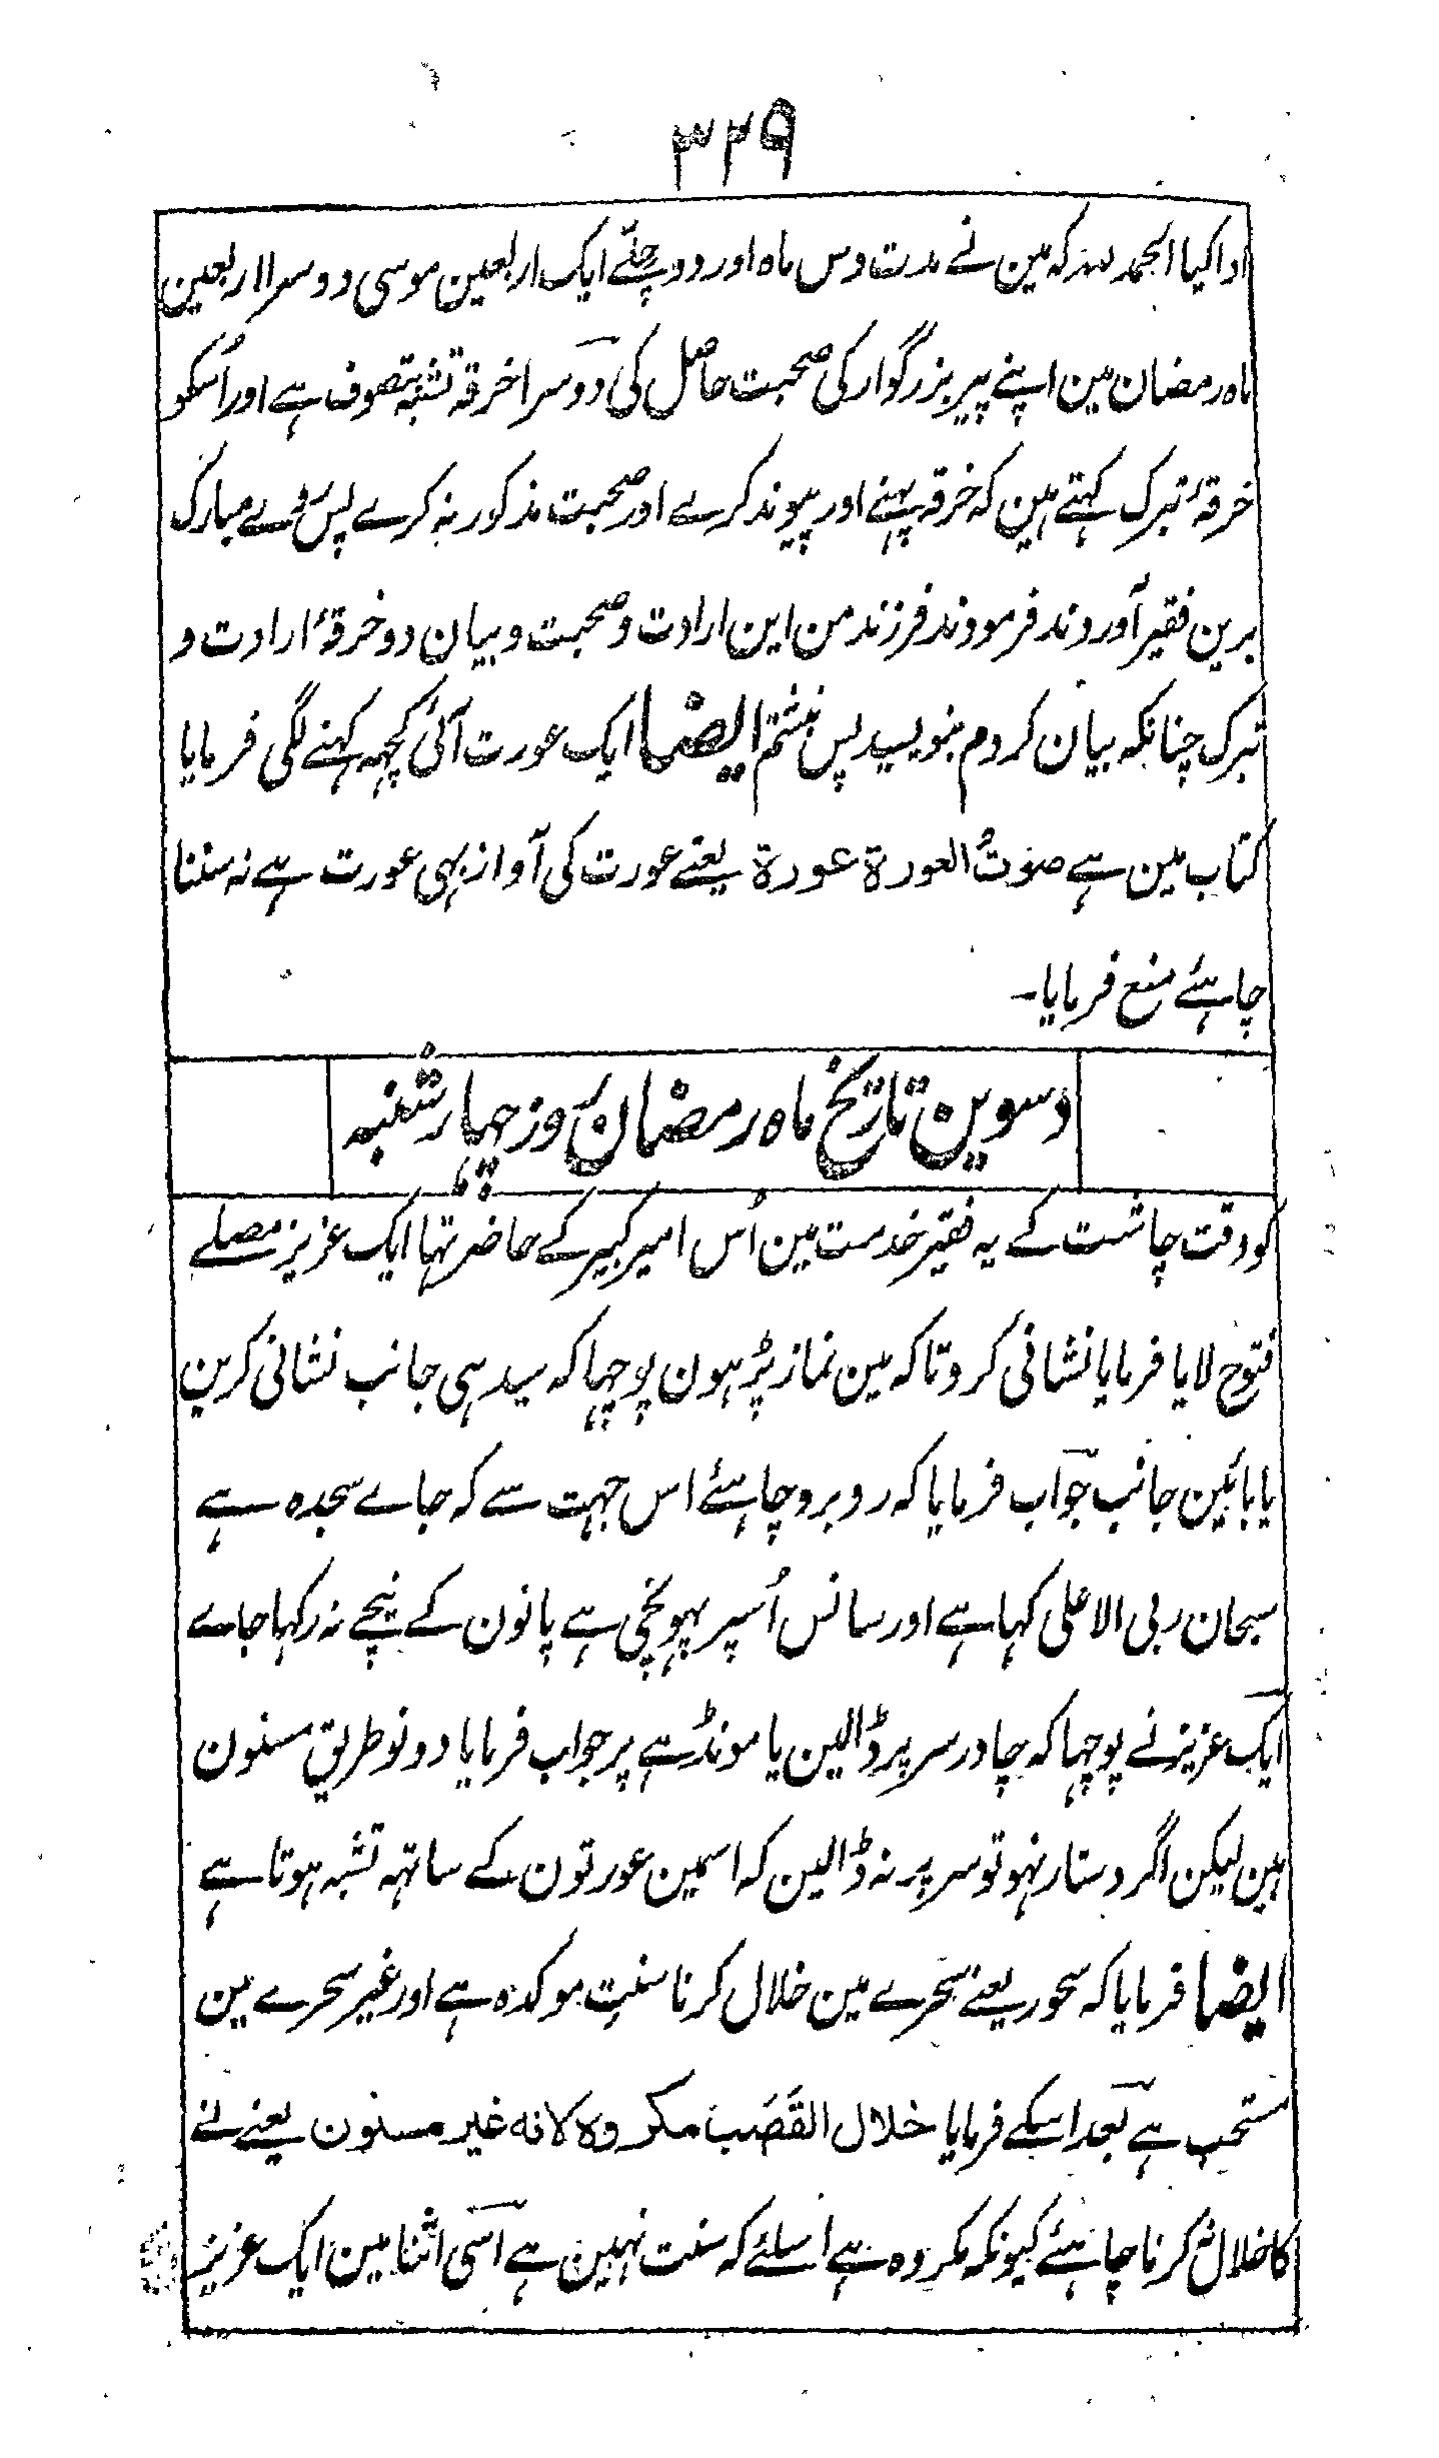 ۳۲۹
ادا کیا الحمد للہ کہ مین نے مدت دس ماہ اور دو چلّے ایک اربعین موسی دوسرا اربعین
ماہ رمضان مین اپنے پیر بزرگوار کی صحبت حاصل کی دوسرا خرقہ تشبہ بتصوف ہے اور اُسکو
خرقۂ تبرک کہتے ہین کہ خرقہ پہنے اور پیوند کرے اور صحبت مذکور نہ کرے پس روے مبارک
برین فقیر آوردند فرمودند فرزند من این ارادت و صحبت و بیان دو خرقۂ ارادت و
تبرک چنانکہ بیان کردم بنویسید پس نبشتم ایضا ایک عورت آئی کچہہ کہنے لگی فرمایا
کتاب مین ہے صوتُ العورة عورة یعنے عورت کی آواز بہی عورت ہے نہ سننا
چاہئے منع فرمایا۔
دسوین تاریخ ماہ رمضان روز چہار شنبہ
کو وقت چاشت کے یہ فقیر خدمت مین اُس امیر کبیر کے حاضر تہا ایک عزیز مصلے
فتوح لایا فرمایا نشانی کرو تاکہ مین نماز پڑہون پوچہا کہ سیدہی جانب نشانی کرین
یا بائین جانب جواب فرمایا کہ روبرو چاہئے اس جہت سے کہ جاے سجدہ ہے
سبحان ربی الاعلی کہا ہے اور سانس اُسپر پہونچی ہے پانون کے نیچے نہ رکہا جاے
ایک عزیز نے پوچہا کہ چادر سر پر ڈالین یا مونڈہے پر جواب فرمایا دونو طریق مسنون
ہین لیکن اگر دستار نہو تو سر پر نہ ڈالین کہ اسمین عورتون کے ساتہہ تشبہ ہوتا ہے
ایضا فرمایا کہ سحور یعنے سحرے مین خلال کرنا سنت موکدہ ہے اور غیر سحرے مین
مستحب ہے بعد اسکے فرمایا خلال القَصَب مکروہ لانه غیر مسنون یعنے نے
کا خلال نہ کرنا چاہئے کیونکہ مکروہ ہے اسلئے کہ سنت نہین ہے اسی اثنا مین ایک عزیز